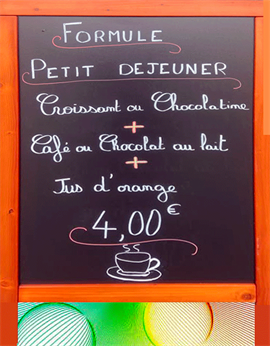 FORMULE
PETIT DEJEUNER
Croissant ou Chocolatine
+
Café ou Chocolat au lait
+
Jus d'orange
4,00€